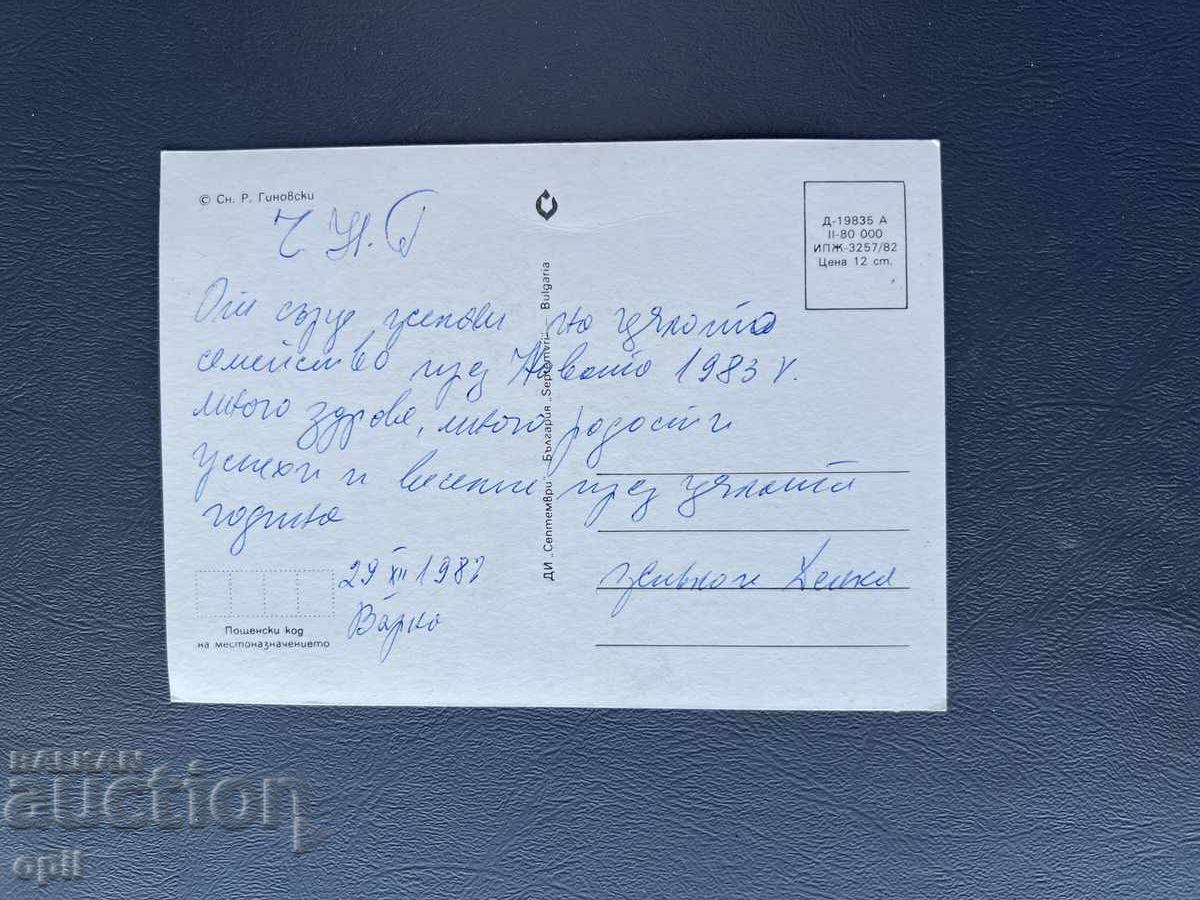 © Сн. Р. Гиновски
Ч.Н.Г
От сърце на цялото
семейство през Новата 1983 г.
много здраве, много радости
успехи и весели през цялата
година
29 XII 1982
Варна
Дечка
Пощенски код
на местоназначението
ДИ „Септември" България „Septemvri" Bulgaria
Д-19835 А
II-80 000
ИПЖ-3257/82
Цена 12 ст.
BALKAN
auction
opil